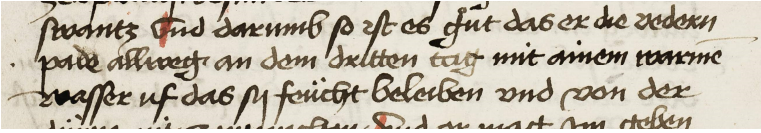 swantz Vnd darumb so ist es gůt das er die vedern
pade allweg an dem dritten tag mit ainem warmē
wasser uf das sÿ feücht beleiben vnd von der